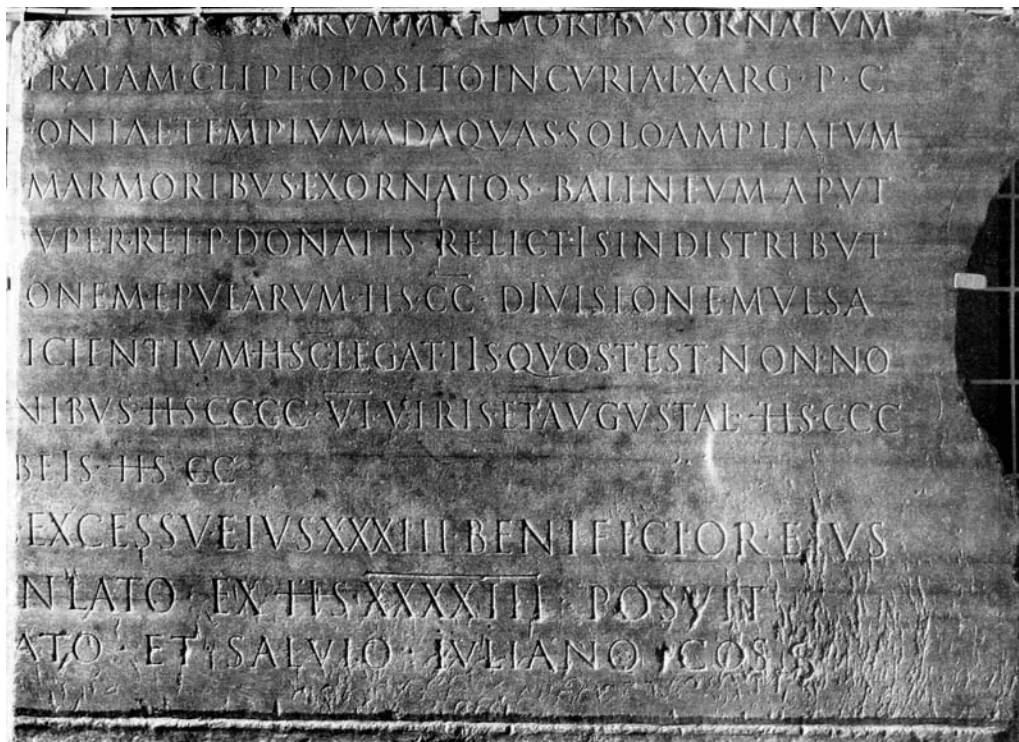 MARMORIBVSORNATVM
CLIPEOPOSITOINCVRIAEX·ARG·P·C
TEMPLVMADAQVAS·SOLOAMPLIATVM
MARMORIBVSEXORNATOS·BALINEVM·APVT
VPER·REI·P·DONATIS·RELICTISINDISTRIBVT
ONEMEPVLARVM·HS·CC·DIVISIONEMVLSA
ICIENTIVM·HSCLEGATIISQVOSTESTNONNO
NIBVS·HSCCCC·VIVIRISETAVGVSTAL·HS·CCC
BEIS·HS·CC
EXCESSVEIVSXXXIIII·BENIFICIOR·EIVS
NLATO·EX·HS·XXXXIII·POSVIT
ATO·ET·SALVIO·IVLIANO·COS